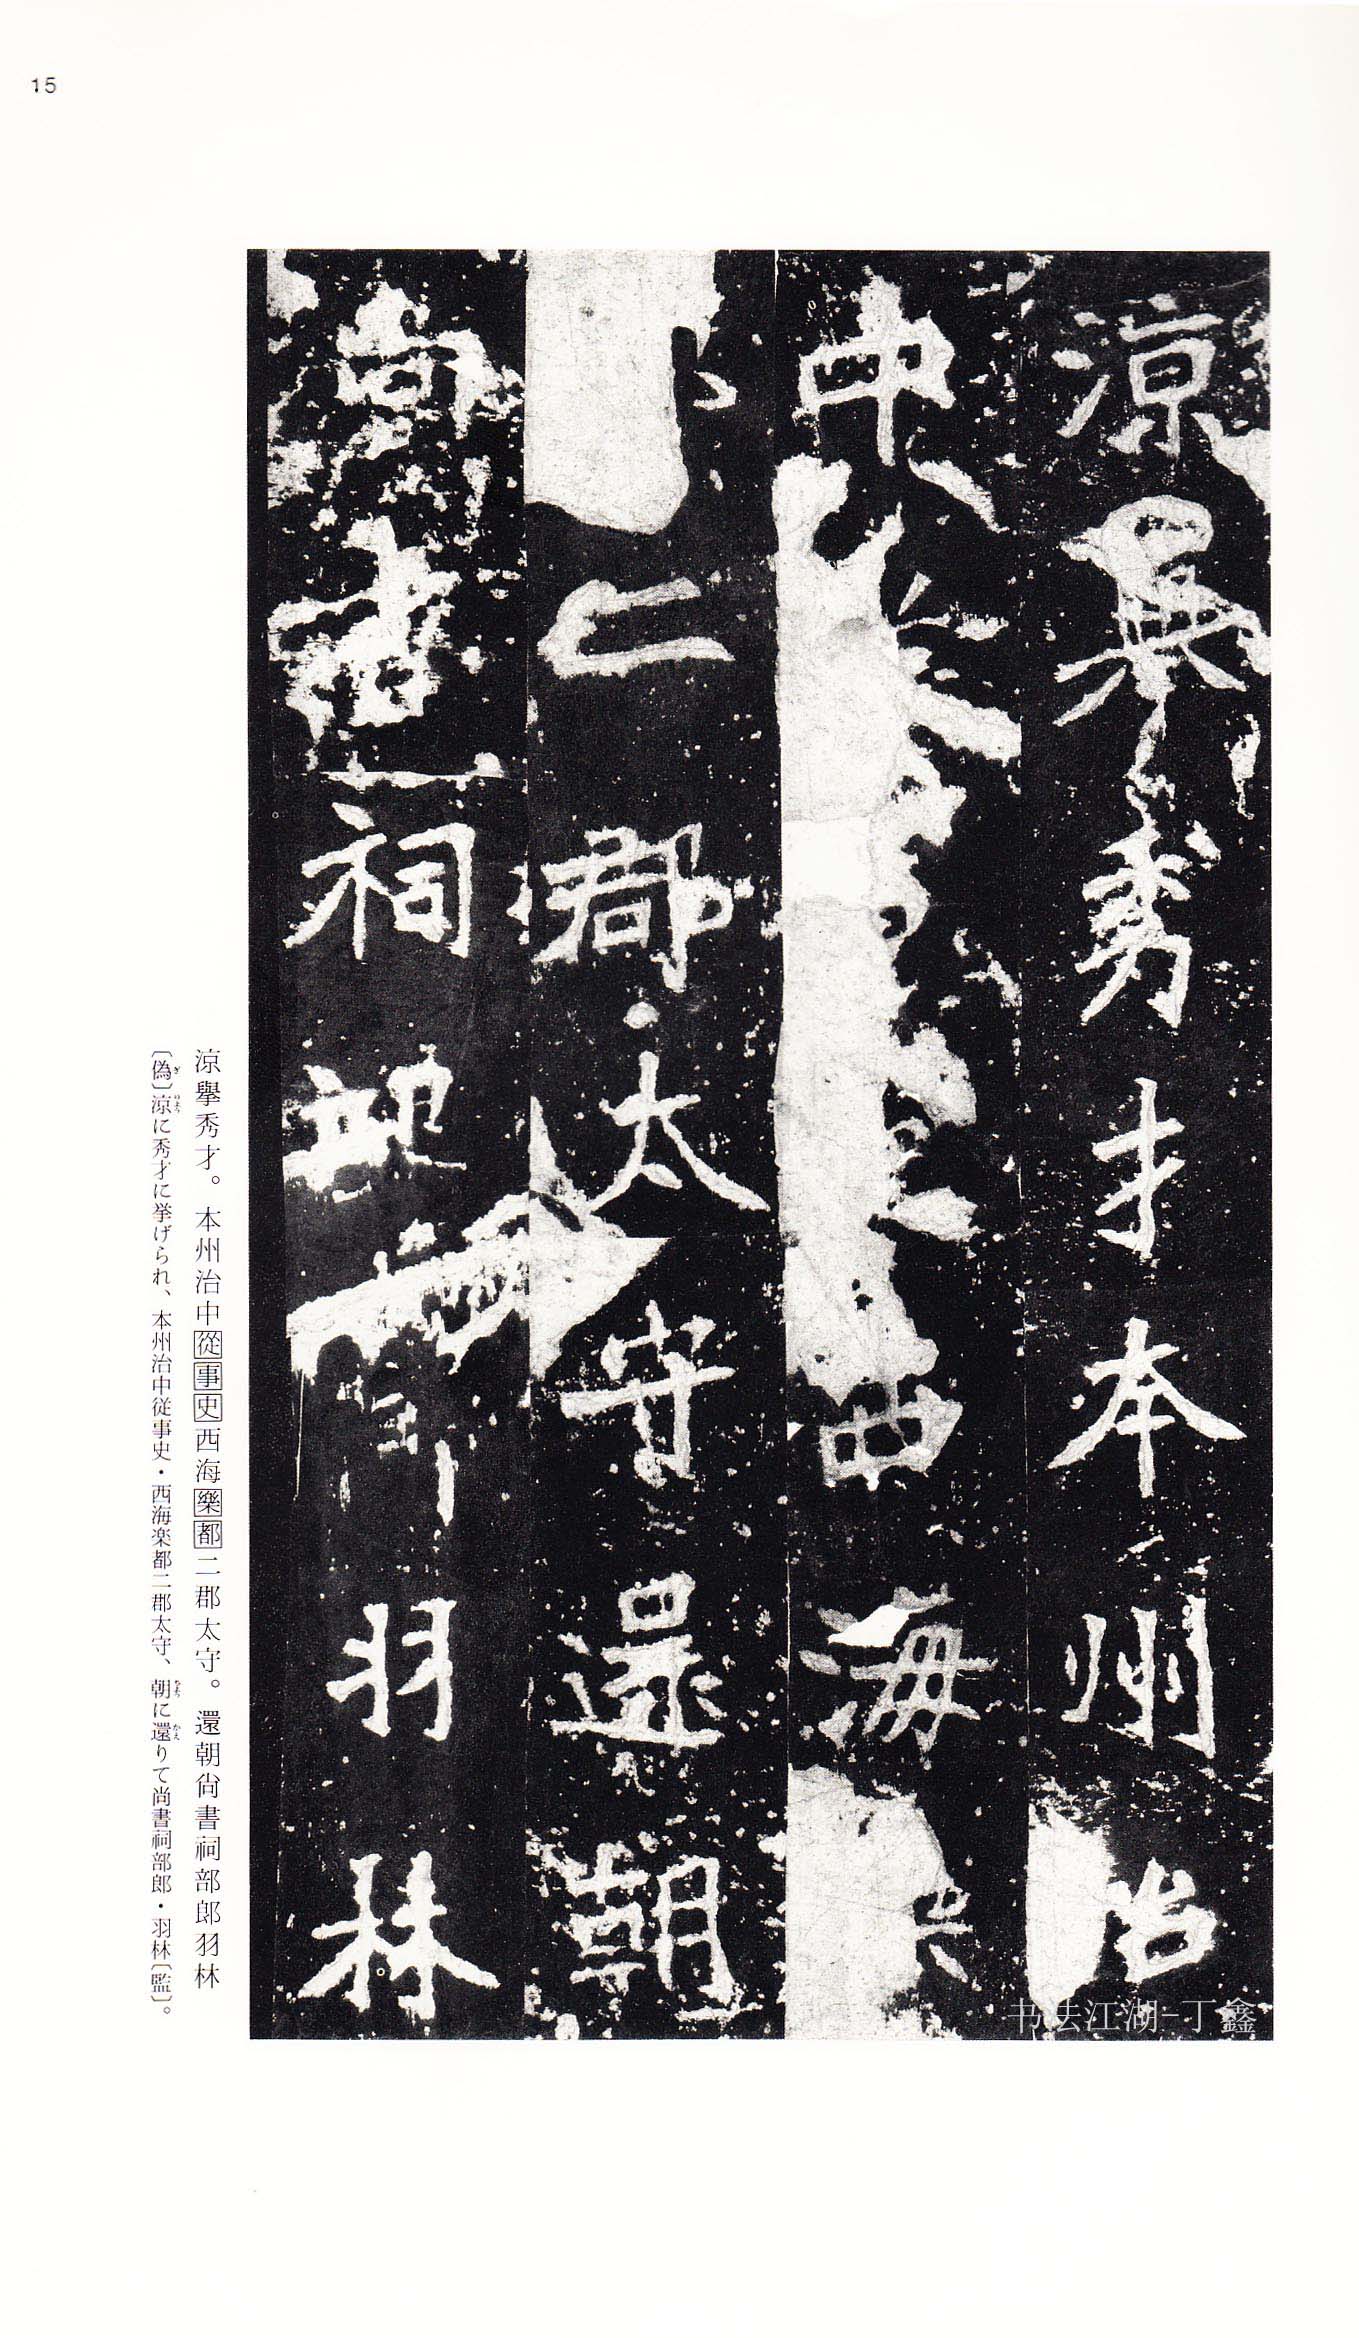 15
涼舉秀才本州治
中西海
二郡太守還朝
尚書祠部郎羽林
涼擧秀才。本州治中從事史西海樂都二郡太守。還朝尙書祠部郎羽林
〔偽〕涼に秀才に挙げられ、本州治中従事史・西海楽都二郡太守、朝に還りて尚書祠部郎・羽林〔監〕。
书法江湖-丁鑫